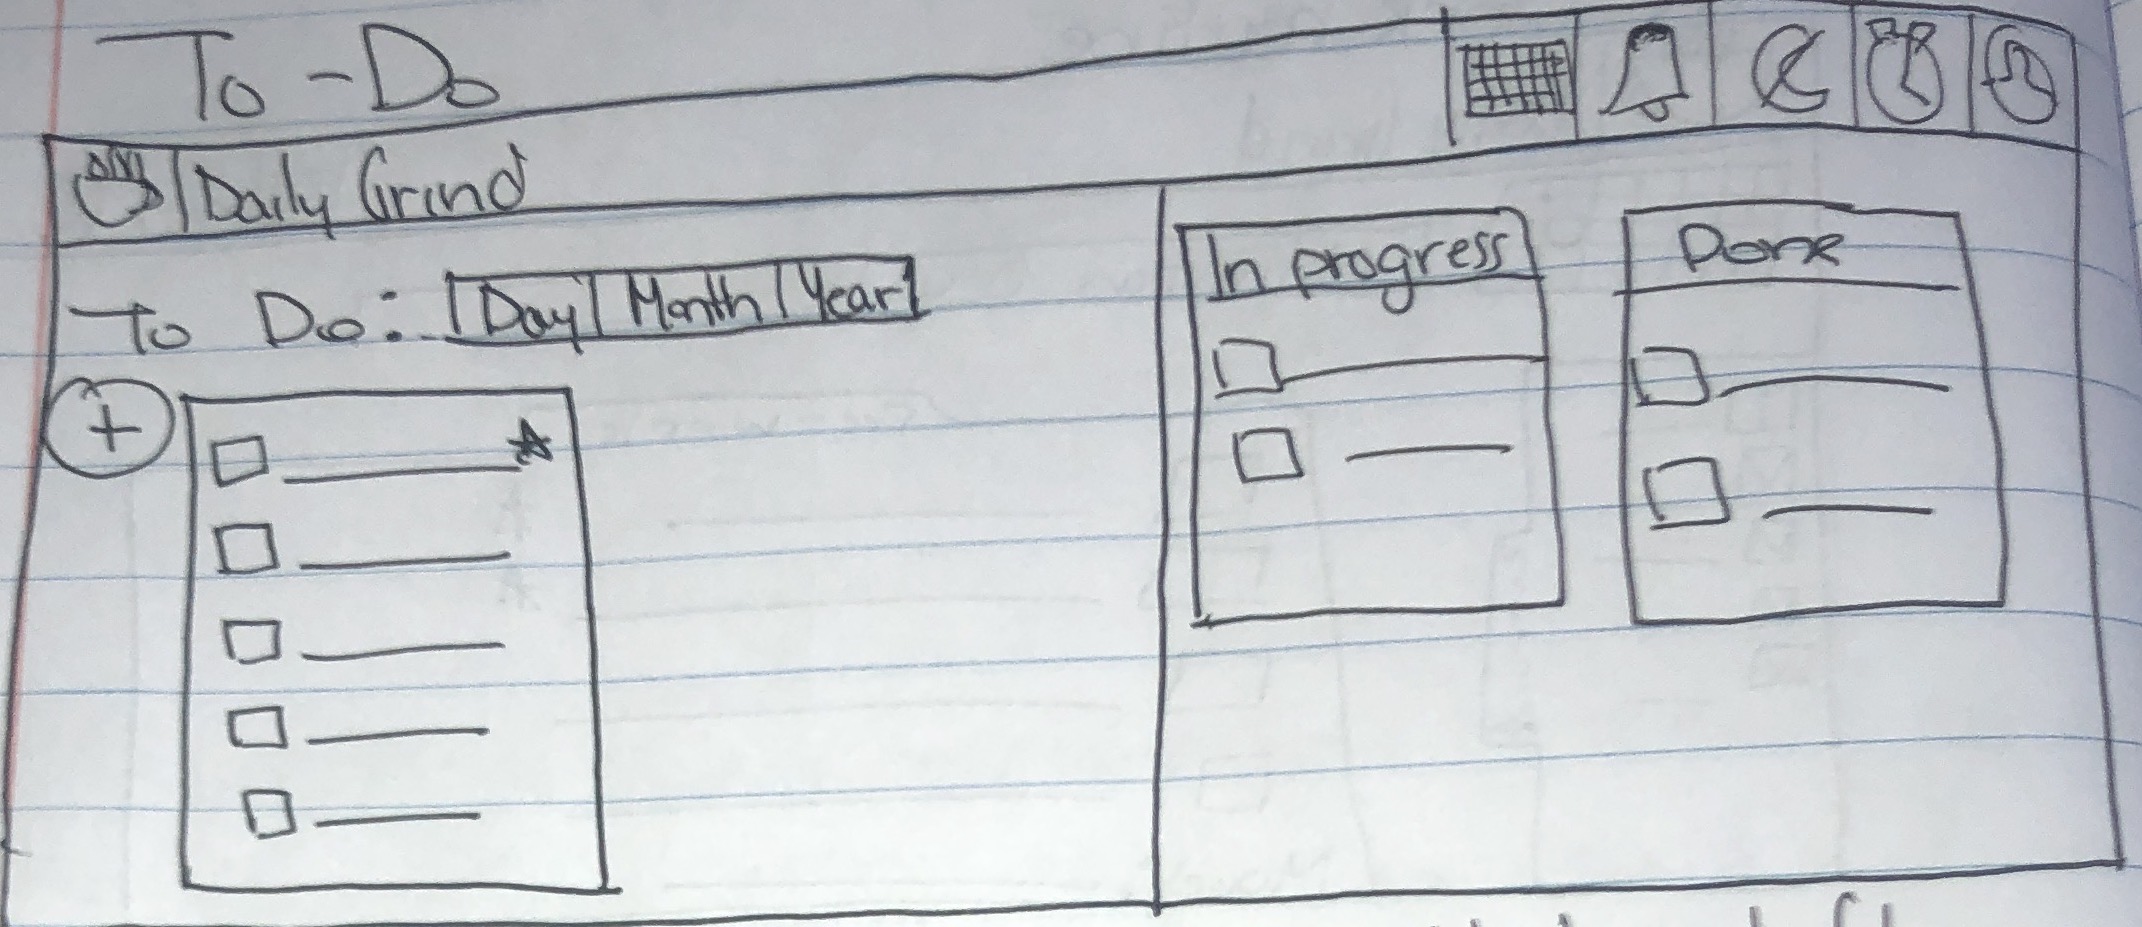 To-Do
Daily Grind
To Do: Day Month Year
+
In progress
Done